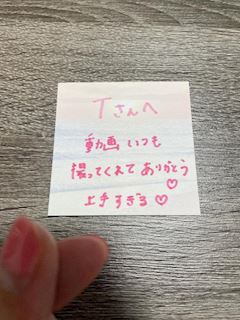 Tさんへ
動画いつも
撮ってくれてありがとう♡
上手すぎる♡